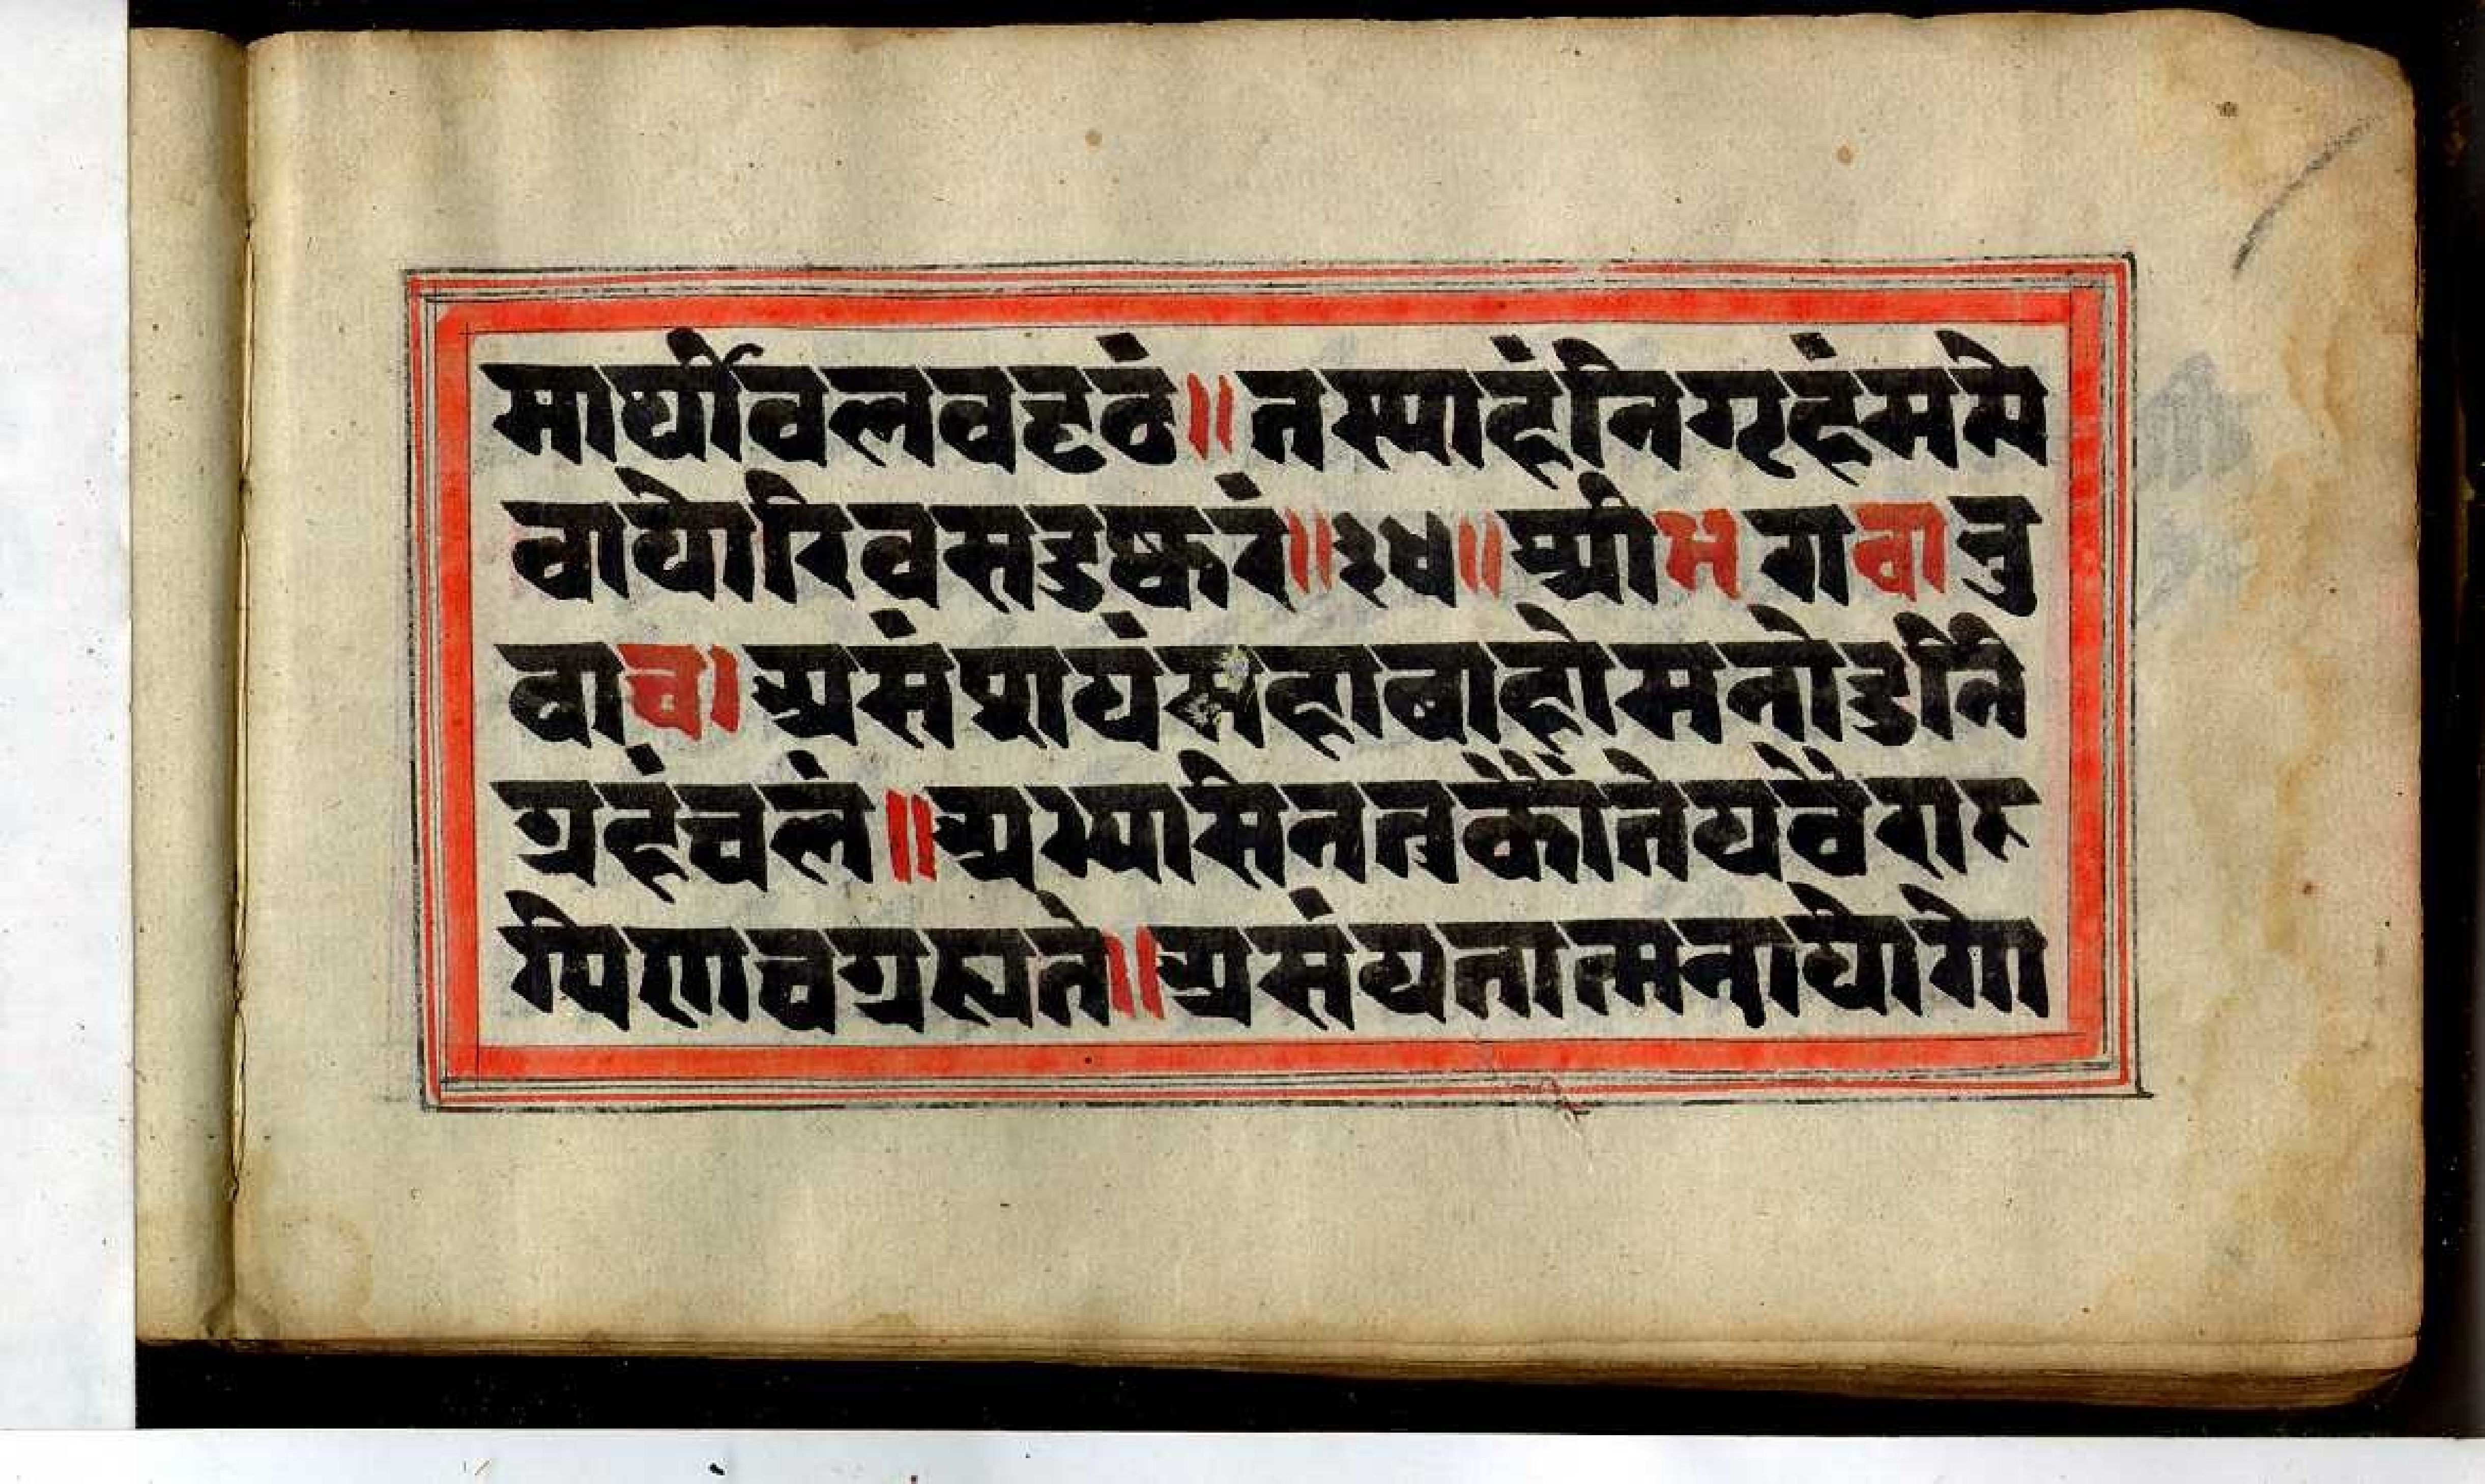 माथीवलवदृढं॥तस्याहंनिगृहंममे
वायोरिवसउष्करं॥३४॥श्रीभगवानु
वाच।असंप्रायंमहाबाहोमनोउर्नि
ग्रहंचलं॥अभ्यासेनतुकौंतेयवैराग
पिणचग्रह्यते॥असंयतात्मनायोगो